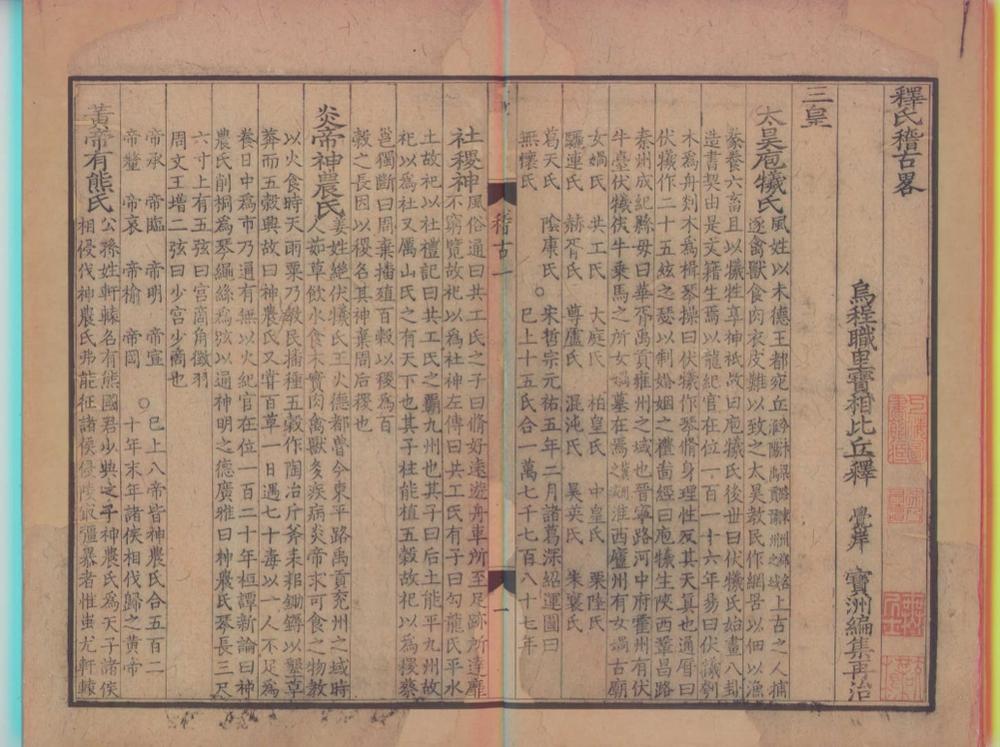 釋氏稽古畧
烏程職里寶相比丘釋 覺岸 寶洲編集再治
三皇
太昊庖犧氏
風姓以木德王都宛丘上古之人捕
逐禽獸食肉衣皮難以致之太昊教民作網罟以佃以漁
豢養六畜且以犧牲享神祇故曰庖犧氏後世曰伏犧氏始畫八卦
造書契由是文籍生焉以龍紀官在位一百一十六年易曰伏犧刳
木為舟剡木為楫琴操曰伏犧作琴脩身理性反其天真也通曆曰
伏犧作二十五絃之瑟以制婚姻之禮皷經曰庖犧生陝西鞏昌路
秦州成紀縣母曰華胥禹貢雍州之域也晉寧路河中府霍州有伏
牛臺伏犧伏牛乗馬之所女媧墓在焉淮西廬州有女媧古廟
女媧氏 共工氏 大庭氏 柏皇氏 中皇氏 栗陸氏
驪連氏 赫胥氏 尊盧氏 混沌氏 昊英氏 朱襄氏
葛天氏 陰康氏 ○宋哲宗元祐五年二月諸葛深紹運圖曰
無懷氏 已上十五氏合一萬七千七百八十七年
稽古一
一
社稷神
風俗通曰共工氏之子曰脩好遠遊舟車所至足跡所達靡
不窮覽故祀以為社神左傳曰共工氏有子曰勾龍氏平水
土故祀以社禮記曰共工氏之霸九州也其子曰后土能平九州故
祀以為社又厲山氏之有天下也其子柱能植五穀故祀以為稷蔡
邕獨斷曰周棄播殖百穀以稷為百
穀之長因以稷名其神棄周后稷也
炎帝神農氏
姜姓繼伏犧氏王火德都魯今東平路禹貢兖州之域時
人茹草飲水食木實肉禽獸多疾病炎帝求可食之物教
以火食時天雨粟乃教民播種五穀作陶冶斤斧耒耜鋤鎒以墾草
莽而五穀興故曰神農氏又甞百草一日遇七十毒以一人不足為
養日中為市乃通有無以火紀官在位一百二十年桓譚新論曰神
農氏削桐為琴繩絲為弦以通神明之德廣雅曰神農氏琴長三尺
六寸上有五弦曰宮商角徵羽
周文王增二弦曰少宮少商也
帝承 帝臨 帝明 帝宣 ○已上八帝皆神農氏合五百二
帝釐 帝哀 帝榆 帝罔 十年末年諸侯相伐歸之黄帝
黄帝有熊氏
公孫姓軒轅名有熊國君少典之子神農氏為天子諸侯
相侵伐神農氏弗能征諸侯侵陵最彊暴者惟蚩尤軒轅